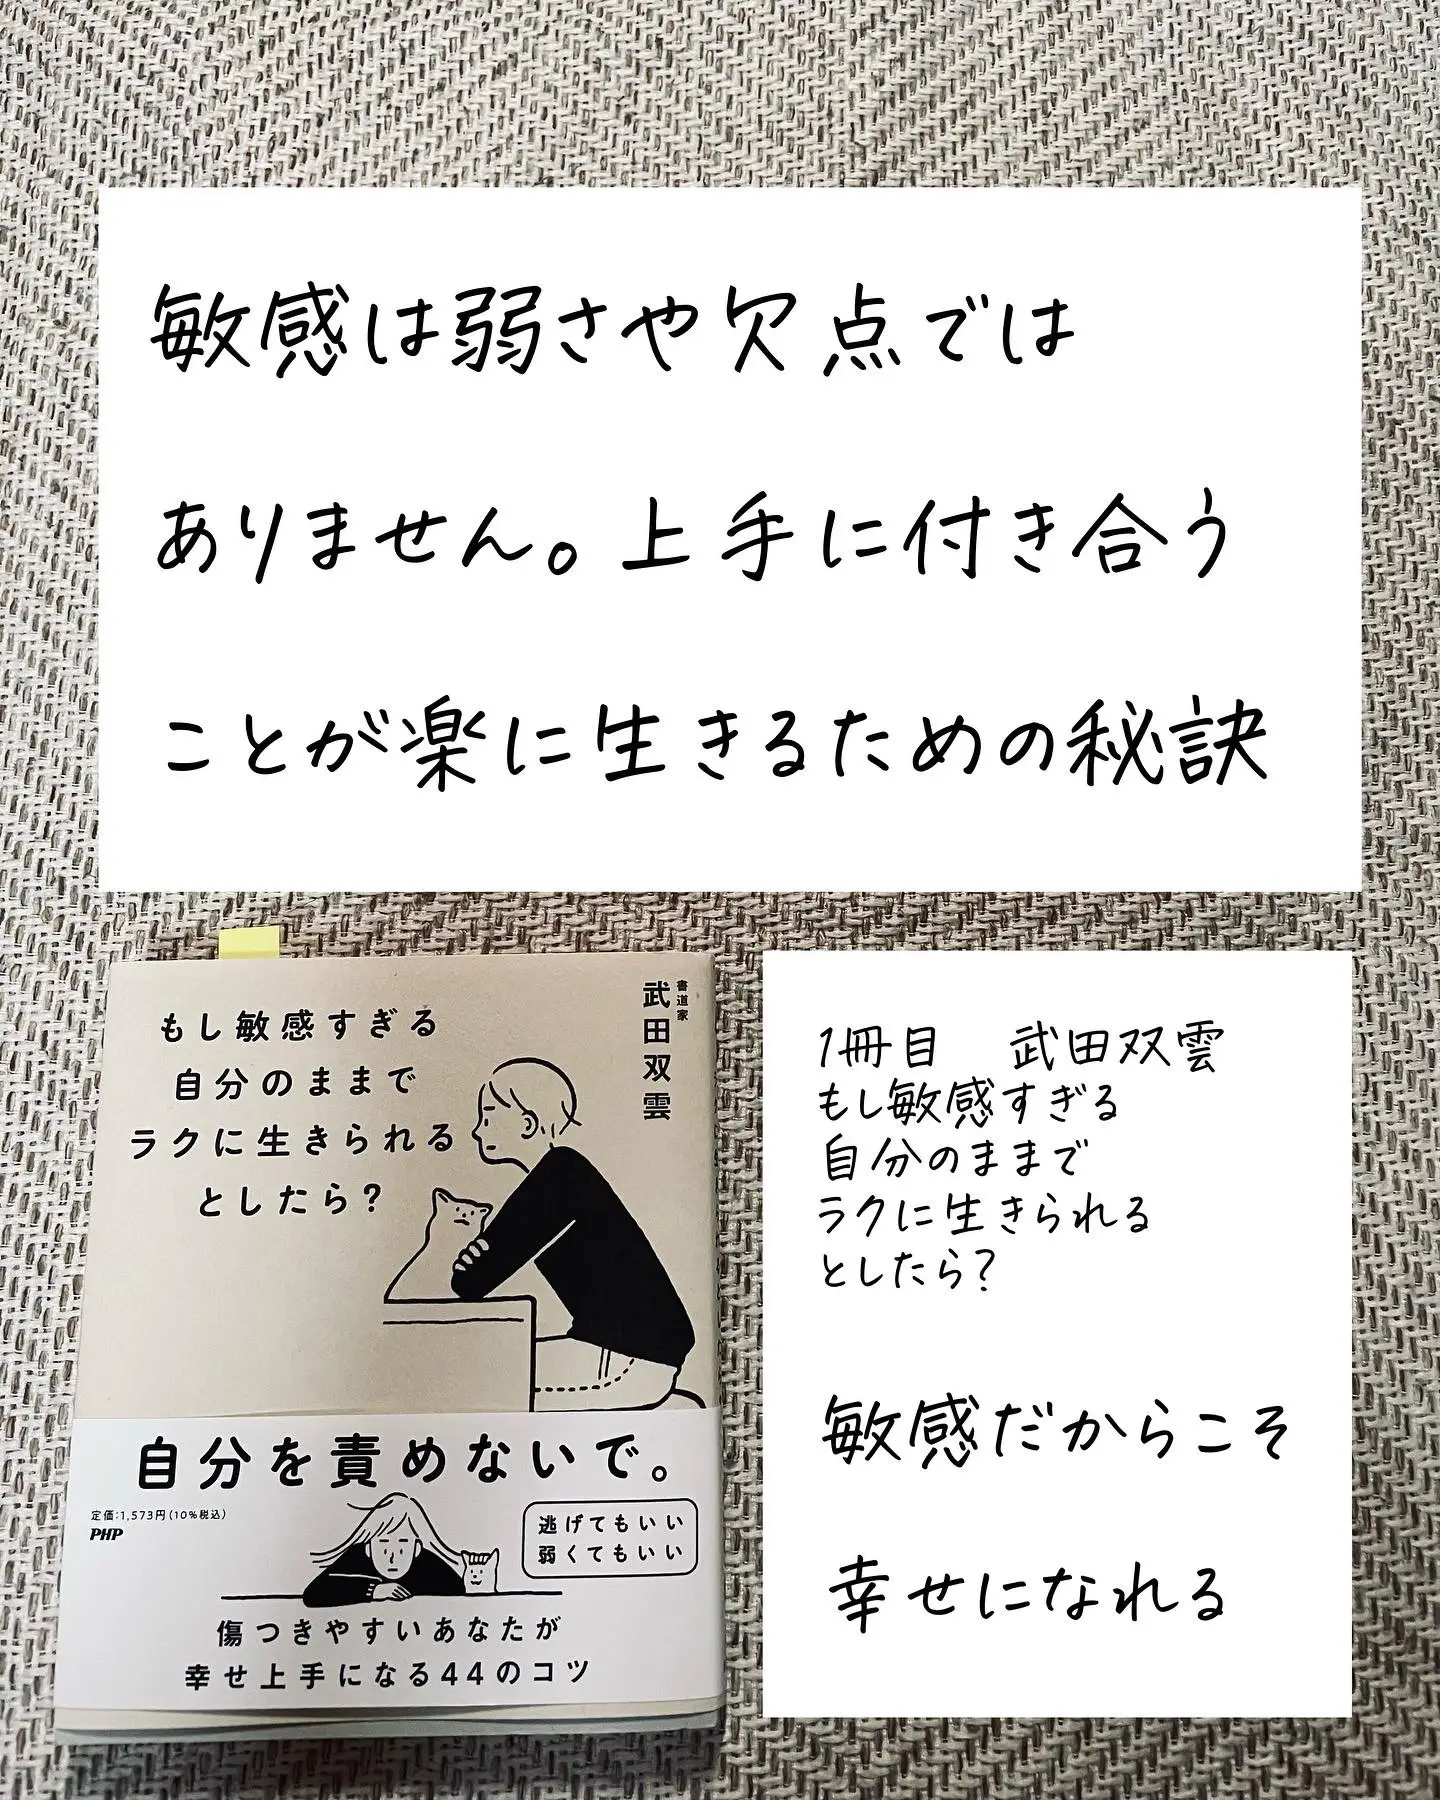 敏感は弱さや欠点では
ありません。上手に付き合う
ことが楽に生きるための秘訣
もし敏感すぎる
自分のままで
ラクに生きられる
としたら?
書道家
武田双雲
自分を責めないで。
定価:1,573円(10%税込)
PHP
逃げてもいい
弱くてもいい
傷つきやすいあなたが
幸せ上手になる44のコツ
1冊目 武田双雲
もし敏感すぎる
自分のままで
ラクに生きられる
としたら?
敏感だからこそ
幸せになれる